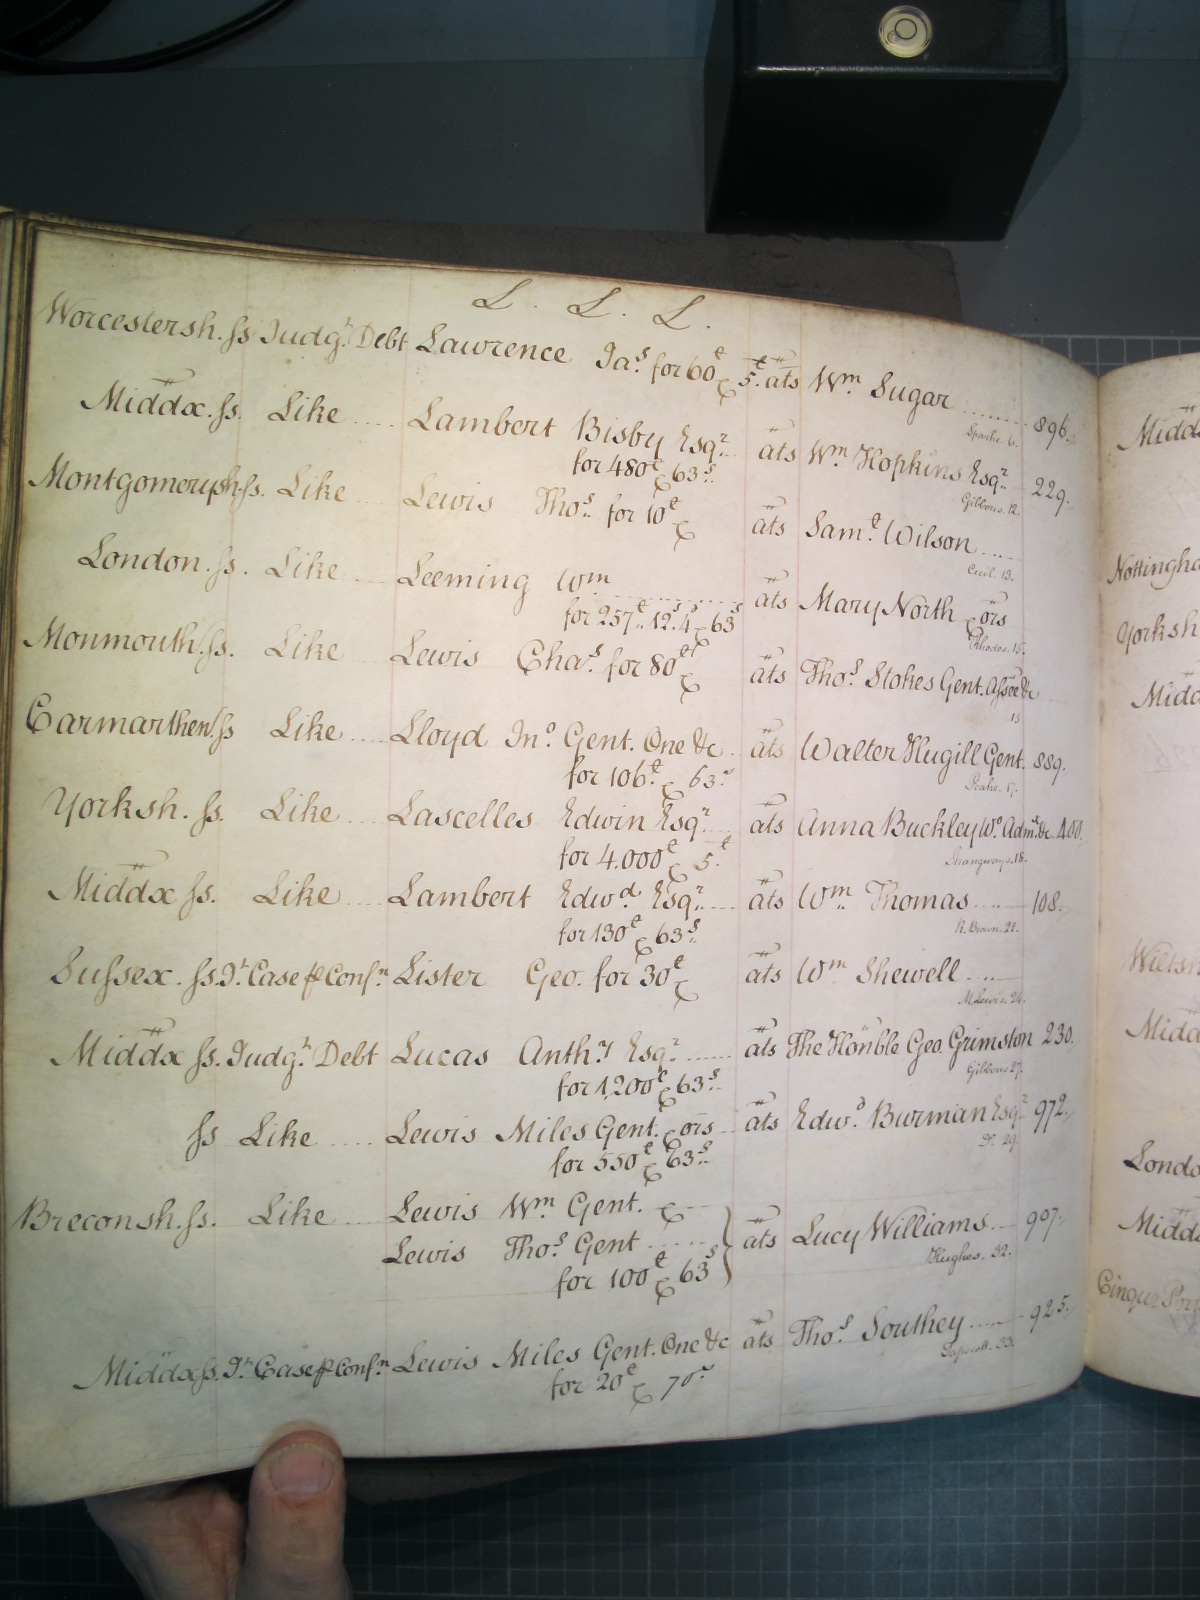 L. L. L.
Worcestersh. ss Judgt. Debt Lawrence Jas. for 60£ & 5£. ats Wm. Sugar 896.
Middx. ss. Like Lambert Bisby Esqr. ats Wm. Hopkins Esqr. 229.
for 480£ & 63s. Gibbons. 12.
Montgomerysh. ss. Like Lewis Thos. for 10£ & ats Saml. Wilson
Cecil. 13.
London. ss. Like Leeming Wm ats Mary North & ors
for 257£.. 12s. 4 & 63s Rhodes. 15.
Monmouth. ss. Like Lewis Chas. for 80£ & ats Thos. Stokes Gent. Assee &c
15
Carmarthen. ss Like Lloyd Jno. Gent. One &c. ats Walter Hugill Gent. 889.
for 106£. & 63s 17.
Yorksh. ss. Like Lascelles Edwin Esqr. ats Anna Buckley Wo. Admx. &c. 400.
for 4.000£ & 5£. Strangways. 18.
Middx ss. Like Lambert Edwd. Esqr. ats Wm. Thomas 108.
for 130£ & 63s. R. Brown. 22.
Sussex. ss. Jt. Case p Confn. Lister Geo. for 30£ & ats Wm Shewell
M. Lewis. 24.
Middx ss. Judgt. Debt Lucas Anthy. Esqr. ats The Honble Geo. Grimston 230.
for 1,200£ & 63s. Gibbons 27.
ss Like Lewis Miles Gent. & ors ats Edwd. Burman Esqr 972.
for 550£ & 63s. Do. 29.
Breconsh. ss. Like Lewis Wm. Gent. &
Lewis Thos. Gent ats Lucy Williams 907.
for 100£ & 63s Hughes. 32.
Middx ss. Jt. Case p Confn. Lewis Miles Gent. One &c ats Thos. Southey 925.
for 20£ & 70s. Tapscott. 33.
Midd
Nottingha
Yorksh
Midd
Wiltsh
Midd
Londo
Midd
Cinque Port